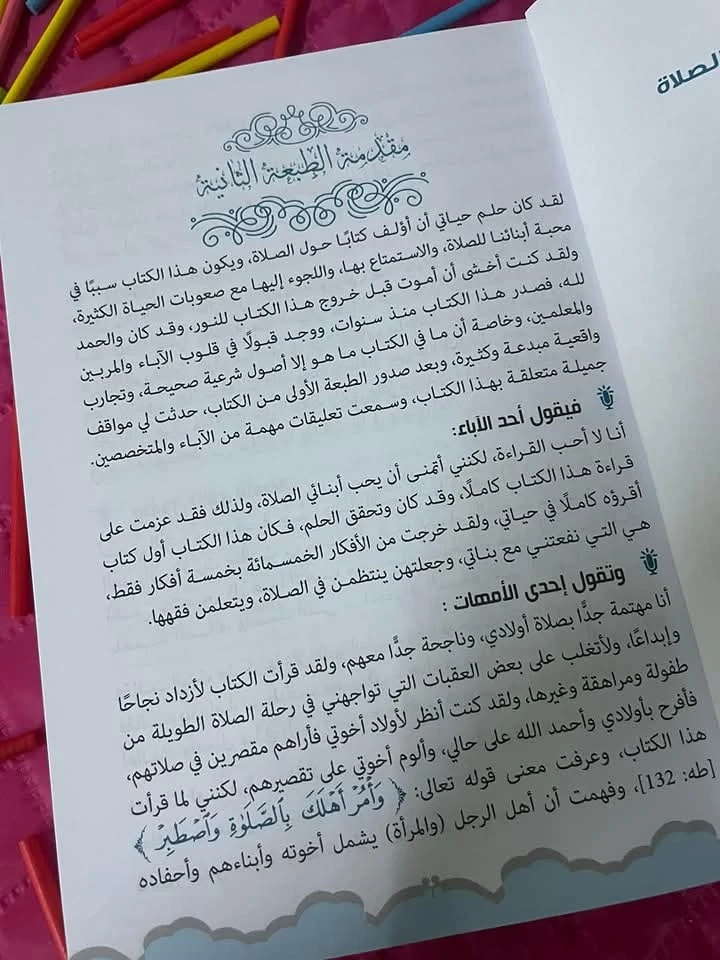 الصلاة
مقدمة الطبعة الثانية
لقد كان حلم حياتي أن أؤلف كتابًا حول الصلاة، ويكون هذا الكتاب سببًا في
محبة أبنائنا للصلاة، والاستمتاع بها، واللجوء إليها مع صعوبات الحياة الكثيرة،
ولقد كنت أخشى أن أموت قبل خروج هذا الكتاب للنور، وقد كان والحمد
لله، فصدر هذا الكتاب منذ سنوات، ووجد قبولًا في قلوب الآباء والمربين
والمعلمين، وخاصة أن ما في الكتاب ما هو إلا أصول شرعية صحيحة، وتجارب
واقعية مبدعة وكثيرة، وبعد صدور الطبعة الأولى من الكتاب، حدثت لي مواقف
جميلة متعلقة بهذا الكتاب، وسمعت تعليقات مهمة من الآباء والمتخصصين.
فيقول أحد الآباء:
أنا لا أحب القراءة، لكنني أتمنى أن يحب أبنائي الصلاة، ولذلك فقد عزمت على
قراءة هذا الكتاب كاملًا، وقد كان وتحقق الحلم، فكان هذا الكتاب أول كتاب
أقرؤه كاملًا في حياتي، ولقد خرجت من الأفكار الخمسمائة بخمسة أفكار فقط،
هي التي نفعتني مع بناتي، وجعلتهن ينتظمن في الصلاة، ويتعلمن فقهها.
وتقول إحدى الأمهات :
أنا مهتمة جدًّا بصلاة أولادي، وناجحة جدًّا معهم، ولقد قرأت الكتاب لأزداد نجاحًا
وإبداعًا، ولأتغلب على بعض العقبات التي تواجهني في رحلة الصلاة الطويلة من
طفولة ومراهقة وغيرها، ولقد كنت أنظر لأولاد أخوتي فأراهم مقصرين في صلاتهم،
فأفرح بأولادي وأحمد الله على حالي، وألوم أخوتي على تقصيرهم، لكنني لما قرأت
هذا الكتاب، وعرفت معنى قوله تعالى: ﴿وَأْمُرْ أَهْلَكَ بِٱلصَّلَوٰةِ وَٱصْطَبِرْ﴾
[طه: 132]، وفهمت أن أهل الرجل (والمرأة) يشمل أخوته وأبناءهم وأحفاده